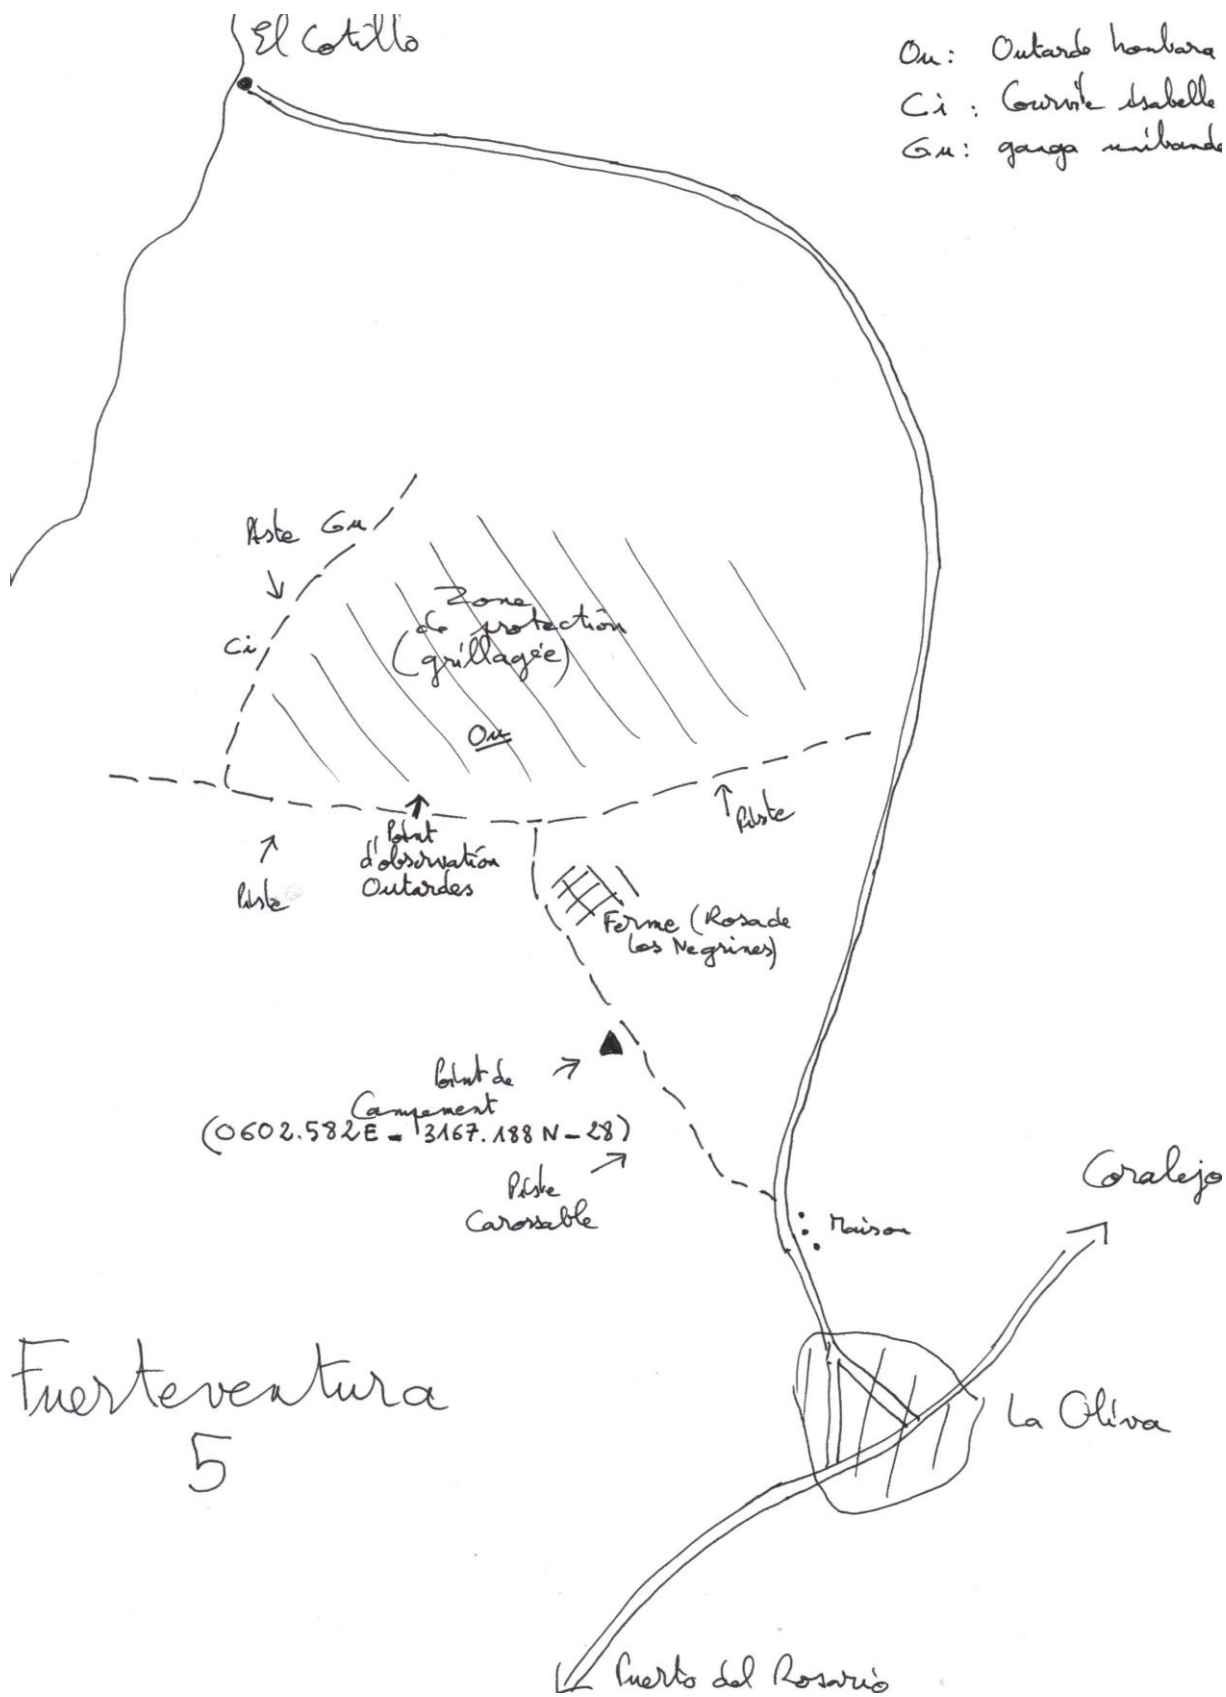 El Cotillo
Ou: Outarde houbara
Ci: Courvite isabelle
Gu: ganga unibande
Piste Gu
Ci
Zone
de protection
(grillagée)
Ou
Piste
Point
d'observation
Outardes
Piste
Ferme (Rosa de
Los Negrines)
Point de
Campement
(0602.582E - 3167.188 N - 28)
Piste
Carossable
Coralejo
Maison
Fuerteventura
5
La Oliva
Puerto del Rosario